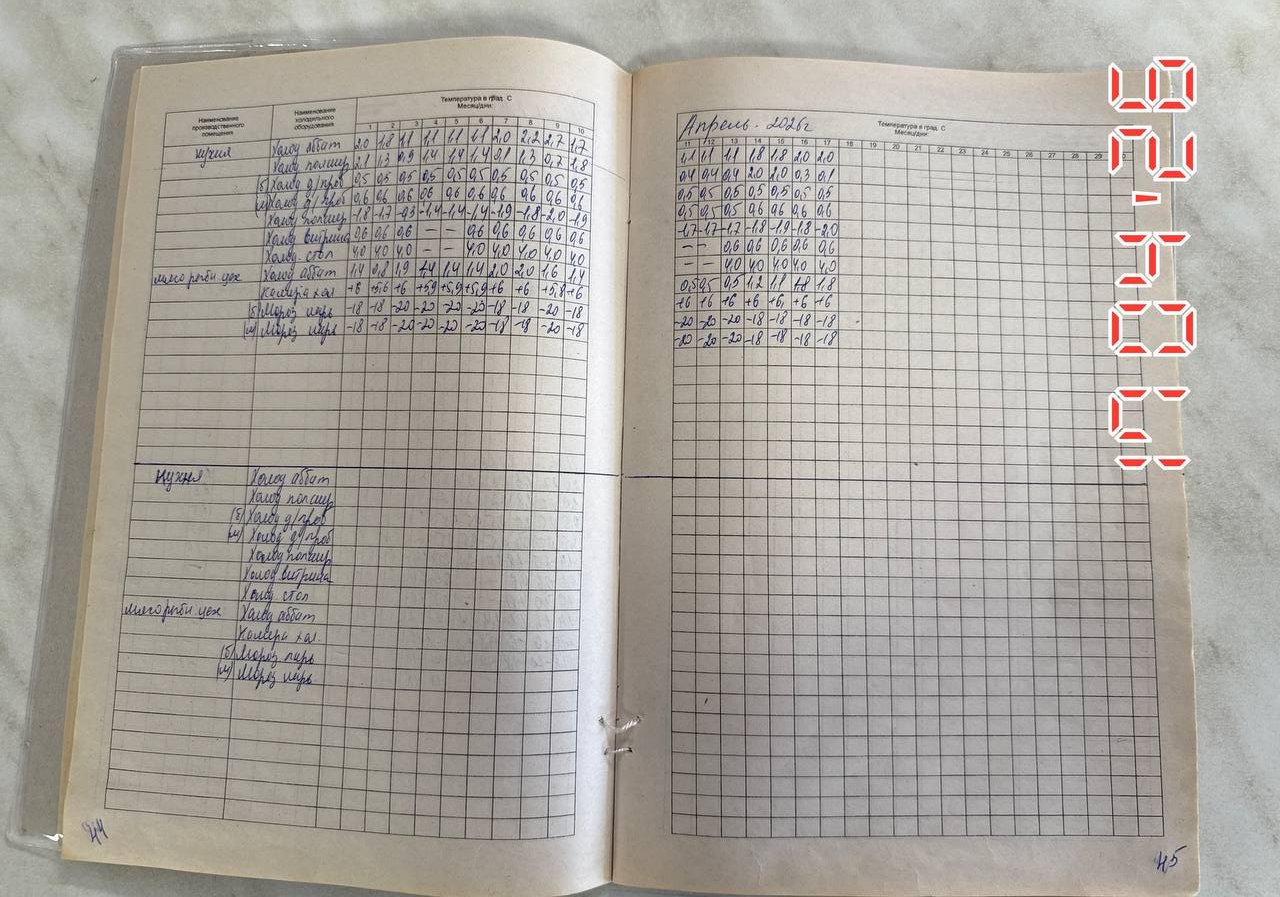 Наименование производственного помещения
Наименование холодильного оборудования
Температура в град. С
Месяц/дни:
1 2 3 4 5 6 7 8 9 10
кухня Холод аббат 2,0 1,8 1,1 1,1 1,1 1,1 2,0 2,2 2,7 1,7
Холод полаир 2,1 1,3 0,9 1,4 1,4 1,4 0,1 1,3 0,7 1,8
(б) Холод д/проб 0,5 0,5 0,5 0,5 0,5 0,5 0,5 0,5 0,5 0,5
(м) Холод д/проб 0,6 0,6 0,6 0,6 0,6 0,6 0,6 0,6 0,6 0,6
Холод полаир -1,8 -1,7 -1,4 -1,4 -1,4 -1,9 -1,8 -2,0 -1,9
Холод витрина 0,6 0,6 0,6 – – 0,6 0,6 0,6 0,6 0,6
Холод. стол 4,0 4,0 4,0 – – 4,0 4,0 4,0 4,0 4,0
мясо рыбн цех Холод аббат 1,4 0,8 1,9 1,4 1,4 1,4 2,0 2,0 1,6 1,4
Камера хол. +6 +5,6 +6 +5,9 +5,9 +5,9 +6 +6 +5,8 +6
(б) Мороз ларь -18 -18 -20 -20 -20 -20 -18 -18 -20 -18
(м) Мороз ларь -18 -18 -20 -20 -20 -20 -18 -18 -20 -18
кухня Холод аббат
Холод полаир
(б) Холод д/проб
(м) Холод д/проб
Холод полаир
Холод витрина
Холод стол
мясо рыбн цех Холод аббат
Камера хол.
(б) Мороз ларь
(м) Мороз ларь
44
Апрель. 2026г
Температура в град. С
Месяц/дни:
11 12 13 14 15 16 17 18 19 20 21 22 23 24 25 26 27 28 29 30
1,1 1,1 1,1 1,8 1,8 2,0 2,0
0,4 0,4 0,4 2,0 2,0 0,3 0,1
0,5 0,5 0,5 0,5 0,5 0,5 0,5
0,5 0,5 0,5 0,6 0,6 0,6 0,6
-1,7 -1,7 -1,7 -1,8 -1,9 -1,8 -2,0
– – 0,6 0,6 0,6 0,6 0,6
– – 4,0 4,0 4,0 4,0 4,0
0,5 0,5 0,5 1,2 1,1 1,8 1,8
+6 +6 +6 +6 +6 +6 +6
-20 -20 -20 -18 -18 -18 -18
-20 -20 -20 -18 -18 -18 -18
45
17 04 '26